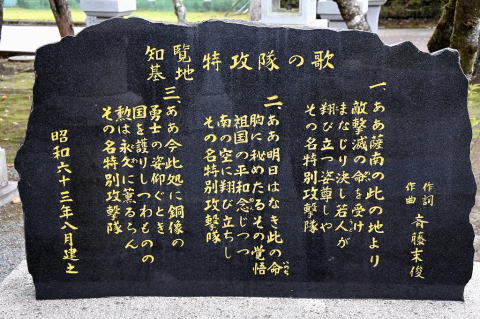 知覧
基地
特攻隊の歌
作詞
作曲 斉藤末俊
一、ああ薩南の此の地より
敵撃滅の命を受け
まなじり決し若人が
翔び立つ姿尊しや
その名特別攻撃隊
二、ああ明日はなき此の命
いのち
胸に秘めたるその覚悟
祖国の平和念じつつ
南の空に翔び立ちし
その名特別攻撃隊
三、ああ今此処に銅像の
勇士の姿仰ぐとき
国を護りしつわものの
勲は永久に薫るらん
その名特別攻撃隊
昭和六十三年八月建之